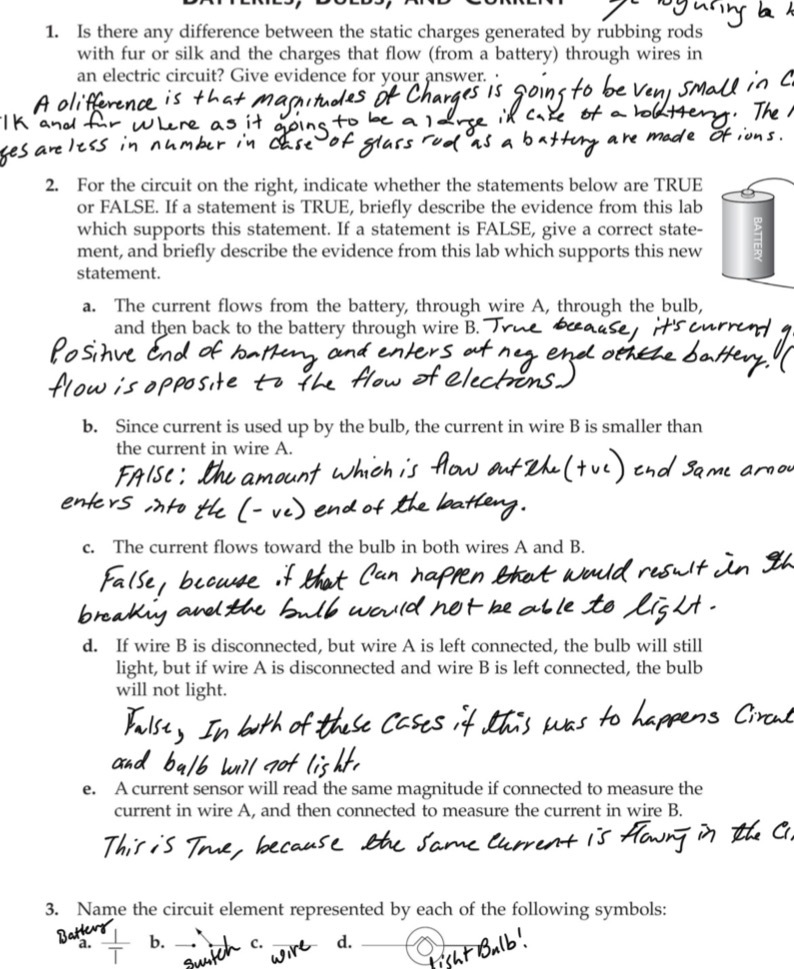 BATTERIES, BULBS, AND CURRENT
using
1. Is there any difference between the static charges generated by rubbing rods
with fur or silk and the charges that flow (from a battery) through wires in
an electric circuit? Give evidence for your answer.
A difference is that magnitudes of Charges is going to be very small in
and fur where as it going to be a large in case of a battery. The
are less in number in case of glass rod as a battery are made of ions.
2. For the circuit on the right, indicate whether the statements below are TRUE
or FALSE. If a statement is TRUE, briefly describe the evidence from this lab
which supports this statement. If a statement is FALSE, give a correct state-
ment, and briefly describe the evidence from this lab which supports this new
statement.
BATTERY
a. The current flows from the battery, through wire A, through the bulb,
and then back to the battery through wire B. True because, it's current
Positive end of battery and enters at neg end of the battery. (
flow is opposite to the flow of electrons.)
b. Since current is used up by the bulb, the current in wire B is smaller than
the current in wire A.
FAlse: the amount which is flow out the (+ve) end same
enters into the (-ve) end of the battery.
c. The current flows toward the bulb in both wires A and B.
False, because if that can happen that would result in
breaking and the bulb would not be able to light.
d. If wire B is disconnected, but wire A is left connected, the bulb will still
light, but if wire A is disconnected and wire B is left connected, the bulb
will not light.
False, In both of these cases if this was to happens
and bulb will not light.
e. A current sensor will read the same magnitude if connected to measure the
current in wire A, and then connected to measure the current in wire B.
This is True, because the same current is flowing in the
3. Name the circuit element represented by each of the following symbols:
Battery
a. b. switch c. wire d. Light Bulb!